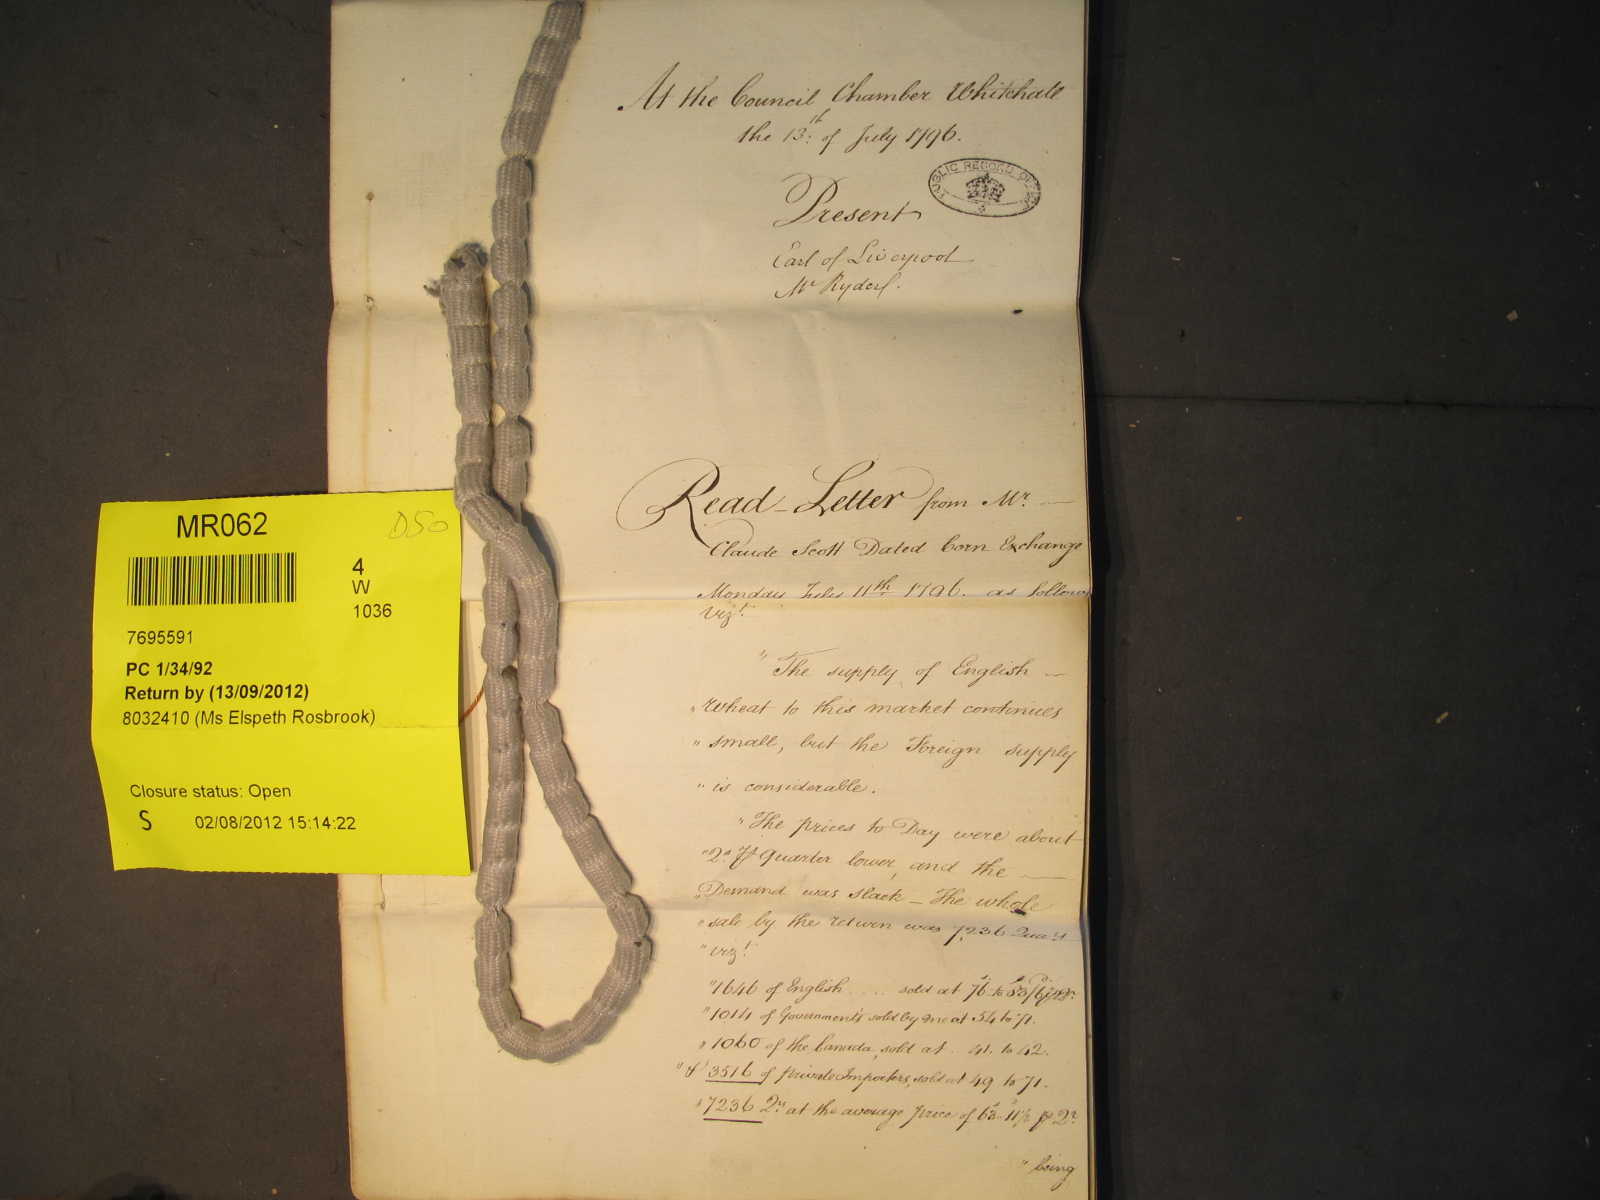 At the Council Chamber Whitehall
the 13th: of July 1796.
PUBLIC RECORD OFFICE
Present
Earl of Liverpool
Mr Ryder.
Read - Letter from Mr. —
Claude Scott Dated Corn Exchange
Monday July 11th 1796. as follows
vizt.
" The supply of English —
" Wheat to this market continues
" small, but the Foreign supply
" is considerable.
" The prices to Day were about
" 2s. ⅌ Quarter lower, and the —
" Demand was slack – The whole
" sale by the return was 7,236 Quars
" vizt.
" 1646 of English .... sold at 76. to 83/6 ⅌ Qr.
" 1014 of Governments sold by me at 54 to 71.
" 1060 of the Canada, sold at .. 41. to 42.
" & 3516 of private Importers, sold at 49 to 71.
" 7236 Qrs at the average price of 63.. 11½ ⅌ Qr.
" being
MR062
D50
4
W
1036
7695591
PC 1/34/92
Return by (13/09/2012)
8032410 (Ms Elspeth Rosbrook)
Closure status: Open
S 02/08/2012 15:14:22